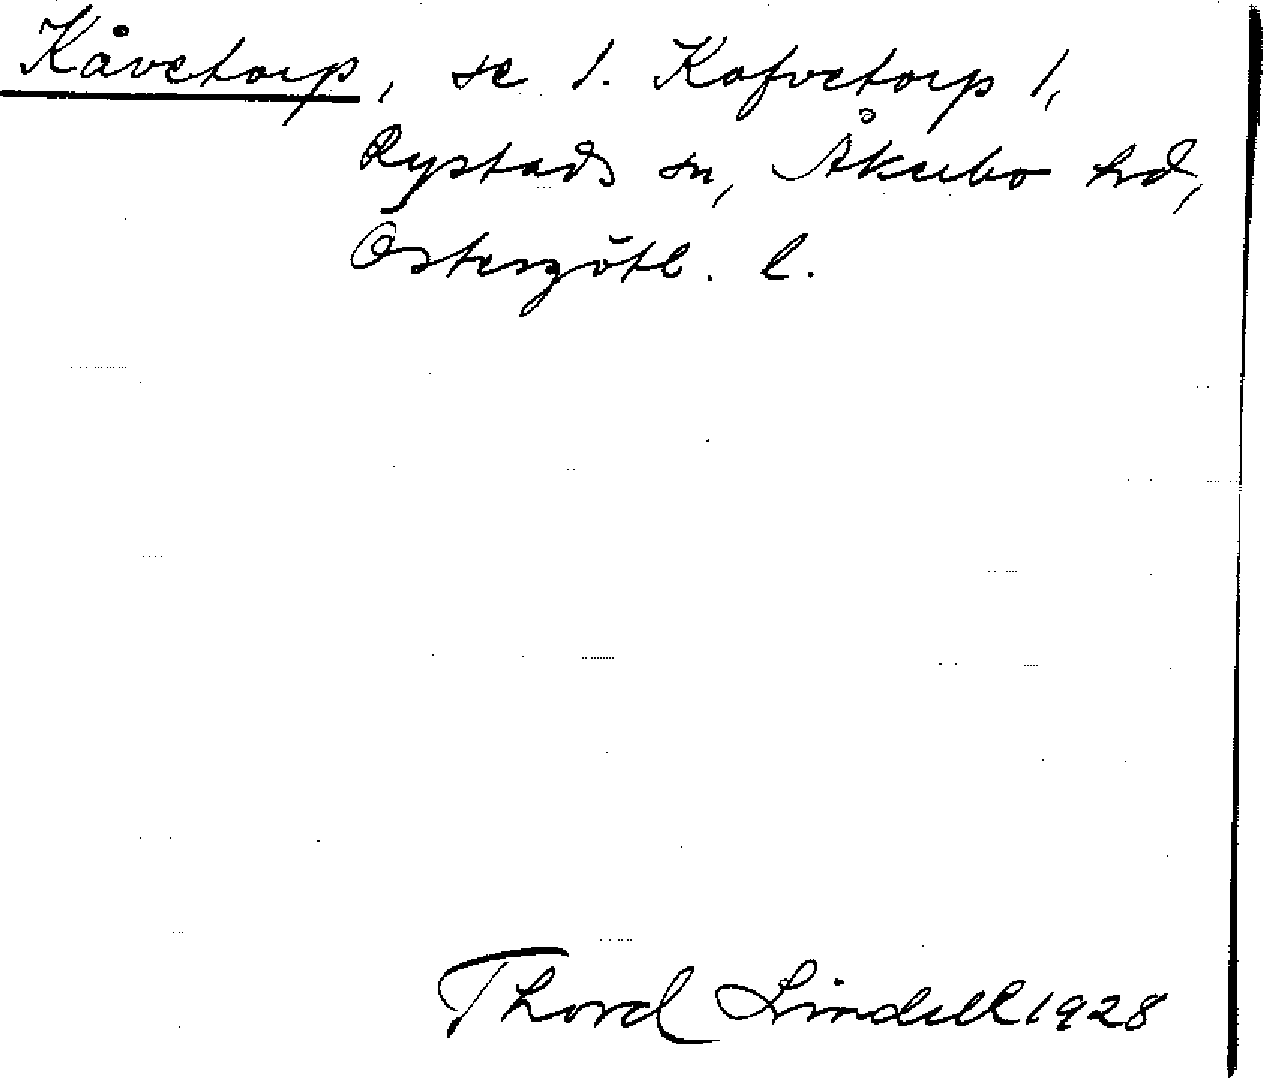 Kåvetorp, se 1. Kofvetorp 1,
Rystads sn, Åkerbo hd,
Östergötl. l.
Thord Lindell 1928